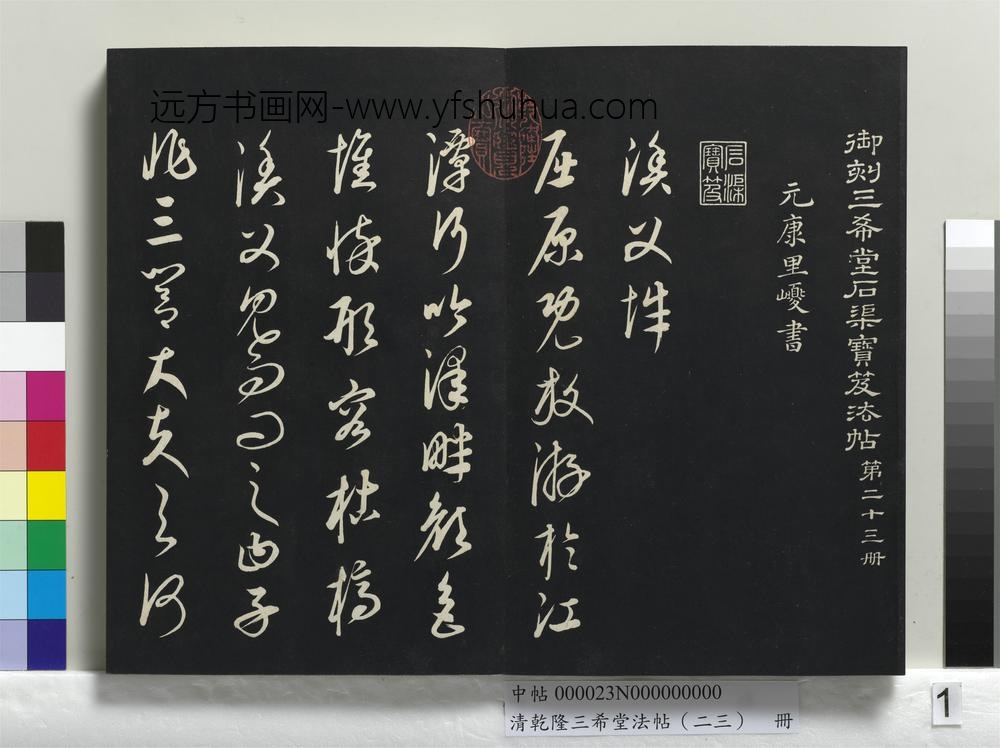 远方书画网-www.yfshuhua.com
御刻三希堂石渠寶笈法帖第二十三冊
元康里巎書
石渠寶笈
漁父辭
屈原既放游於江
潭行吟澤畔顏色
憔悴形容枯槁
漁父見而問之曰子
非三閭大夫與何
中帖 000023N000000000
清乾隆三希堂法帖（二三） 冊
1